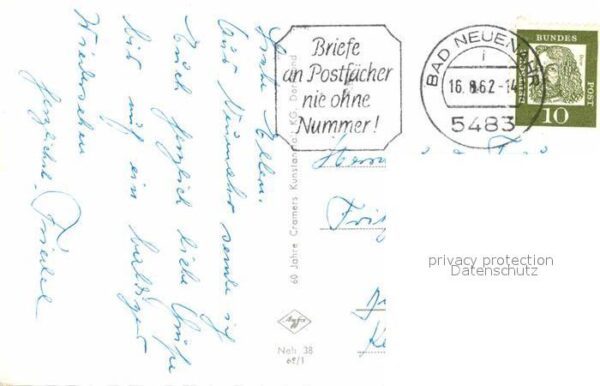 Liebe Ellen.
Aus Neuenahr sende ich
Euch herzlich liebe Grüße
bis auf ein baldiges
Wiedersehen
herzlichst
60 Jahre Cramers Kunstanstalt KG, Dortmund
Agfa
Neh 38
62/1
Briefe
an Postfächer
nie ohne
Nummer!
BAD NEUENAHR
i
16.8.62-14
5483
DEUTSCHE
BUNDES
POST
10
Herrn
privacy protection
Datenschutz